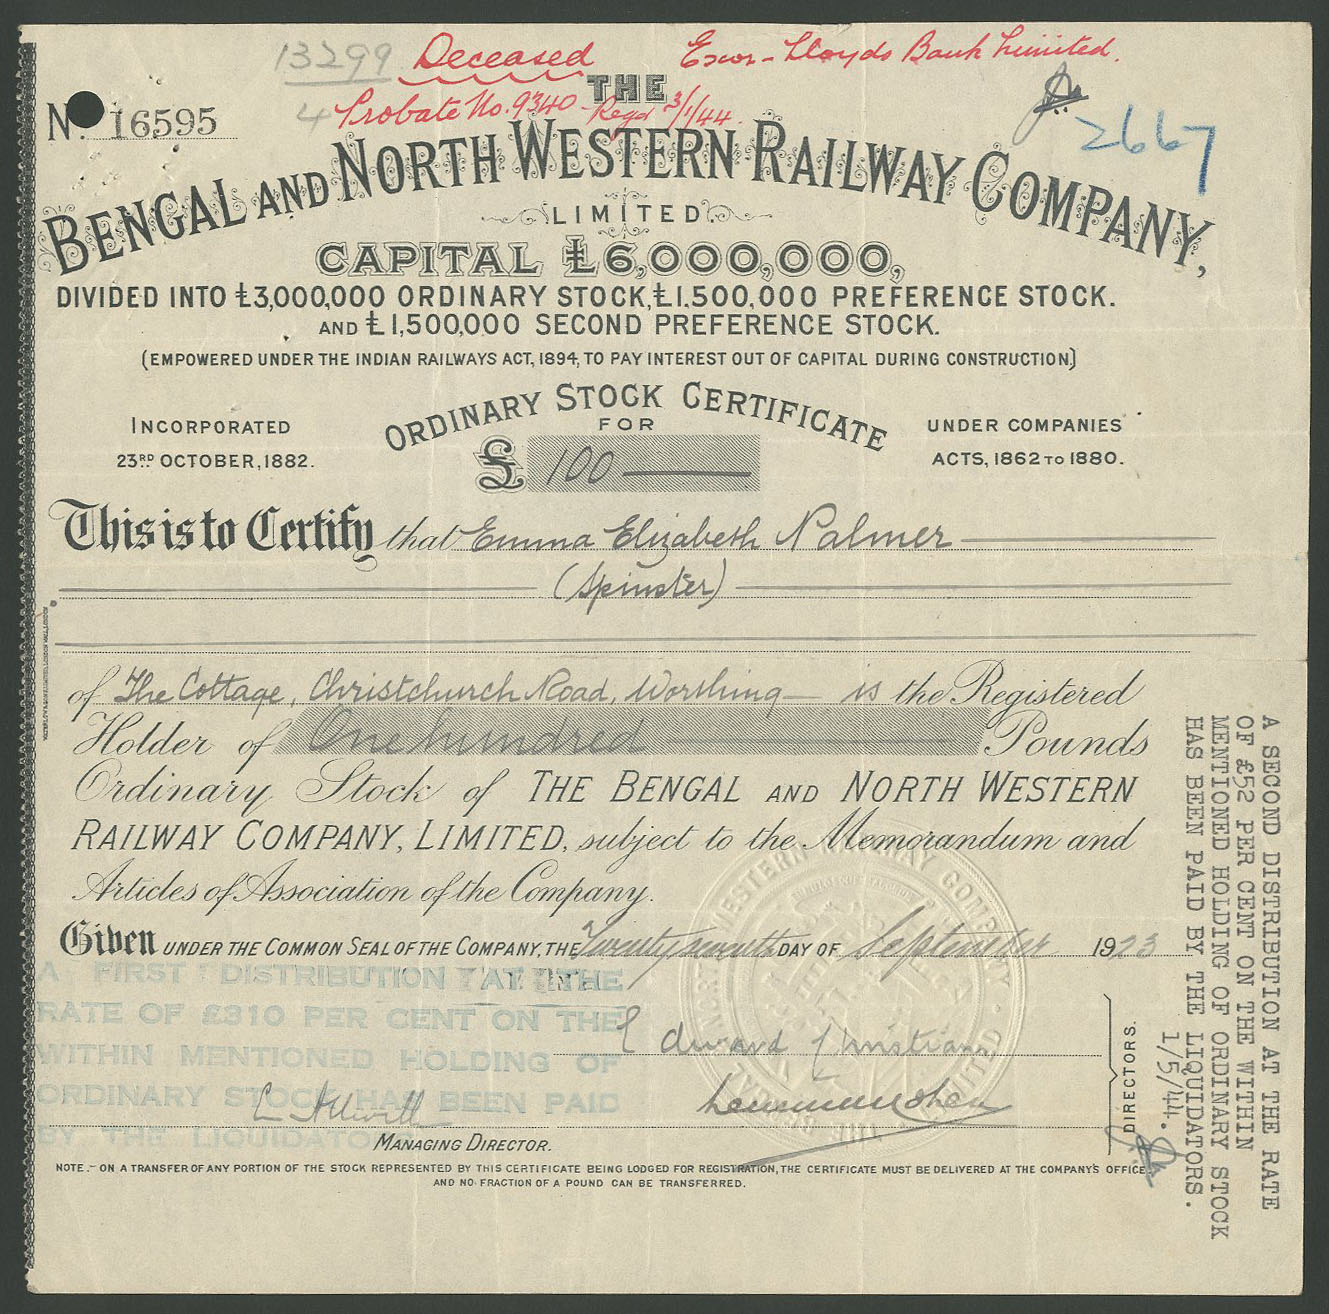 13299 Deceased Exor - Lloyds Bank Limited.
4 Probate No. 9340 Regd 3/1/44.
2667
No. 16595
THE
BENGAL AND NORTH WESTERN RAILWAY COMPANY,
LIMITED
CAPITAL £6,000,000,
DIVIDED INTO £3,000,000 ORDINARY STOCK, £1,500,000 PREFERENCE STOCK.
AND £1,500,000 SECOND PREFERENCE STOCK.
(EMPOWERED UNDER THE INDIAN RAILWAYS ACT, 1894, TO PAY INTEREST OUT OF CAPITAL DURING CONSTRUCTION)
ORDINARY STOCK CERTIFICATE
FOR
£ 100
INCORPORATED
23RD OCTOBER, 1882.
UNDER COMPANIES
ACTS, 1862 TO 1880.
This is to Certify that Emma Elizabeth Palmer
(Spinster)
of The Cottage, Christchurch Road, Worthing is the Registered
Holder of One hundred Pounds
Ordinary Stock of THE BENGAL AND NORTH WESTERN
RAILWAY COMPANY, LIMITED, subject to the Memorandum and
Articles of Association of the Company.
Given UNDER THE COMMON SEAL OF THE COMPANY, THE Twenty seventh DAY OF September 1923
A FIRST DISTRIBUTION AT THE
RATE OF £310 PER CENT ON THE
WITHIN MENTIONED HOLDING OF
ORDINARY STOCK HAS BEEN PAID
BY THE LIQUIDATORS
Edward Christian
DIRECTORS.
MANAGING DIRECTOR.
NOTE.- ON A TRANSFER OF ANY PORTION OF THE STOCK REPRESENTED BY THIS CERTIFICATE BEING LODGED FOR REGISTRATION, THE CERTIFICATE MUST BE DELIVERED AT THE COMPANY'S OFFICE,
AND NO FRACTION OF A POUND CAN BE TRANSFERRED.
A SECOND DISTRIBUTION AT THE RATE
OF £52 PER CENT ON THE WITHIN
MENTIONED HOLDING OF ORDINARY STOCK
HAS BEEN PAID BY THE LIQUIDATORS.
1/5/44.